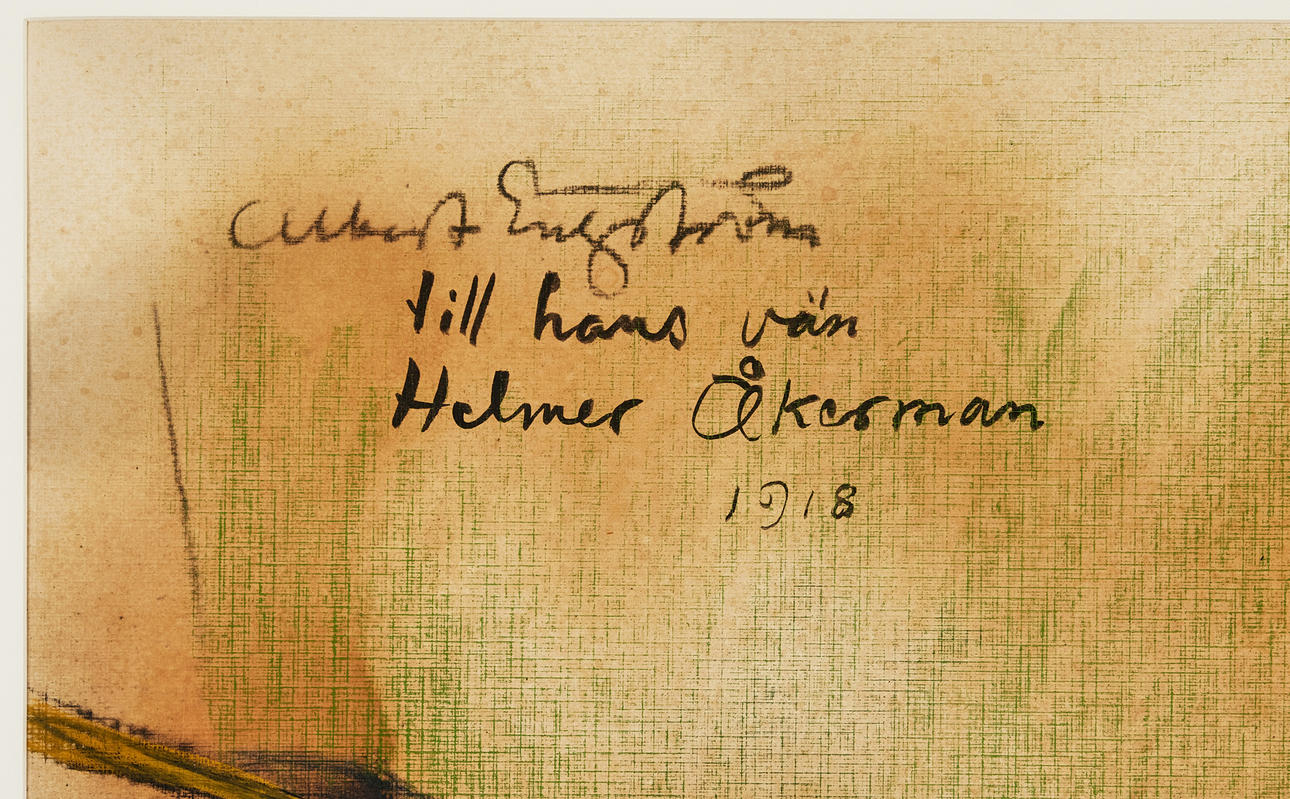 Albert Engström
till hans vän
Helmer Åkerman
1918